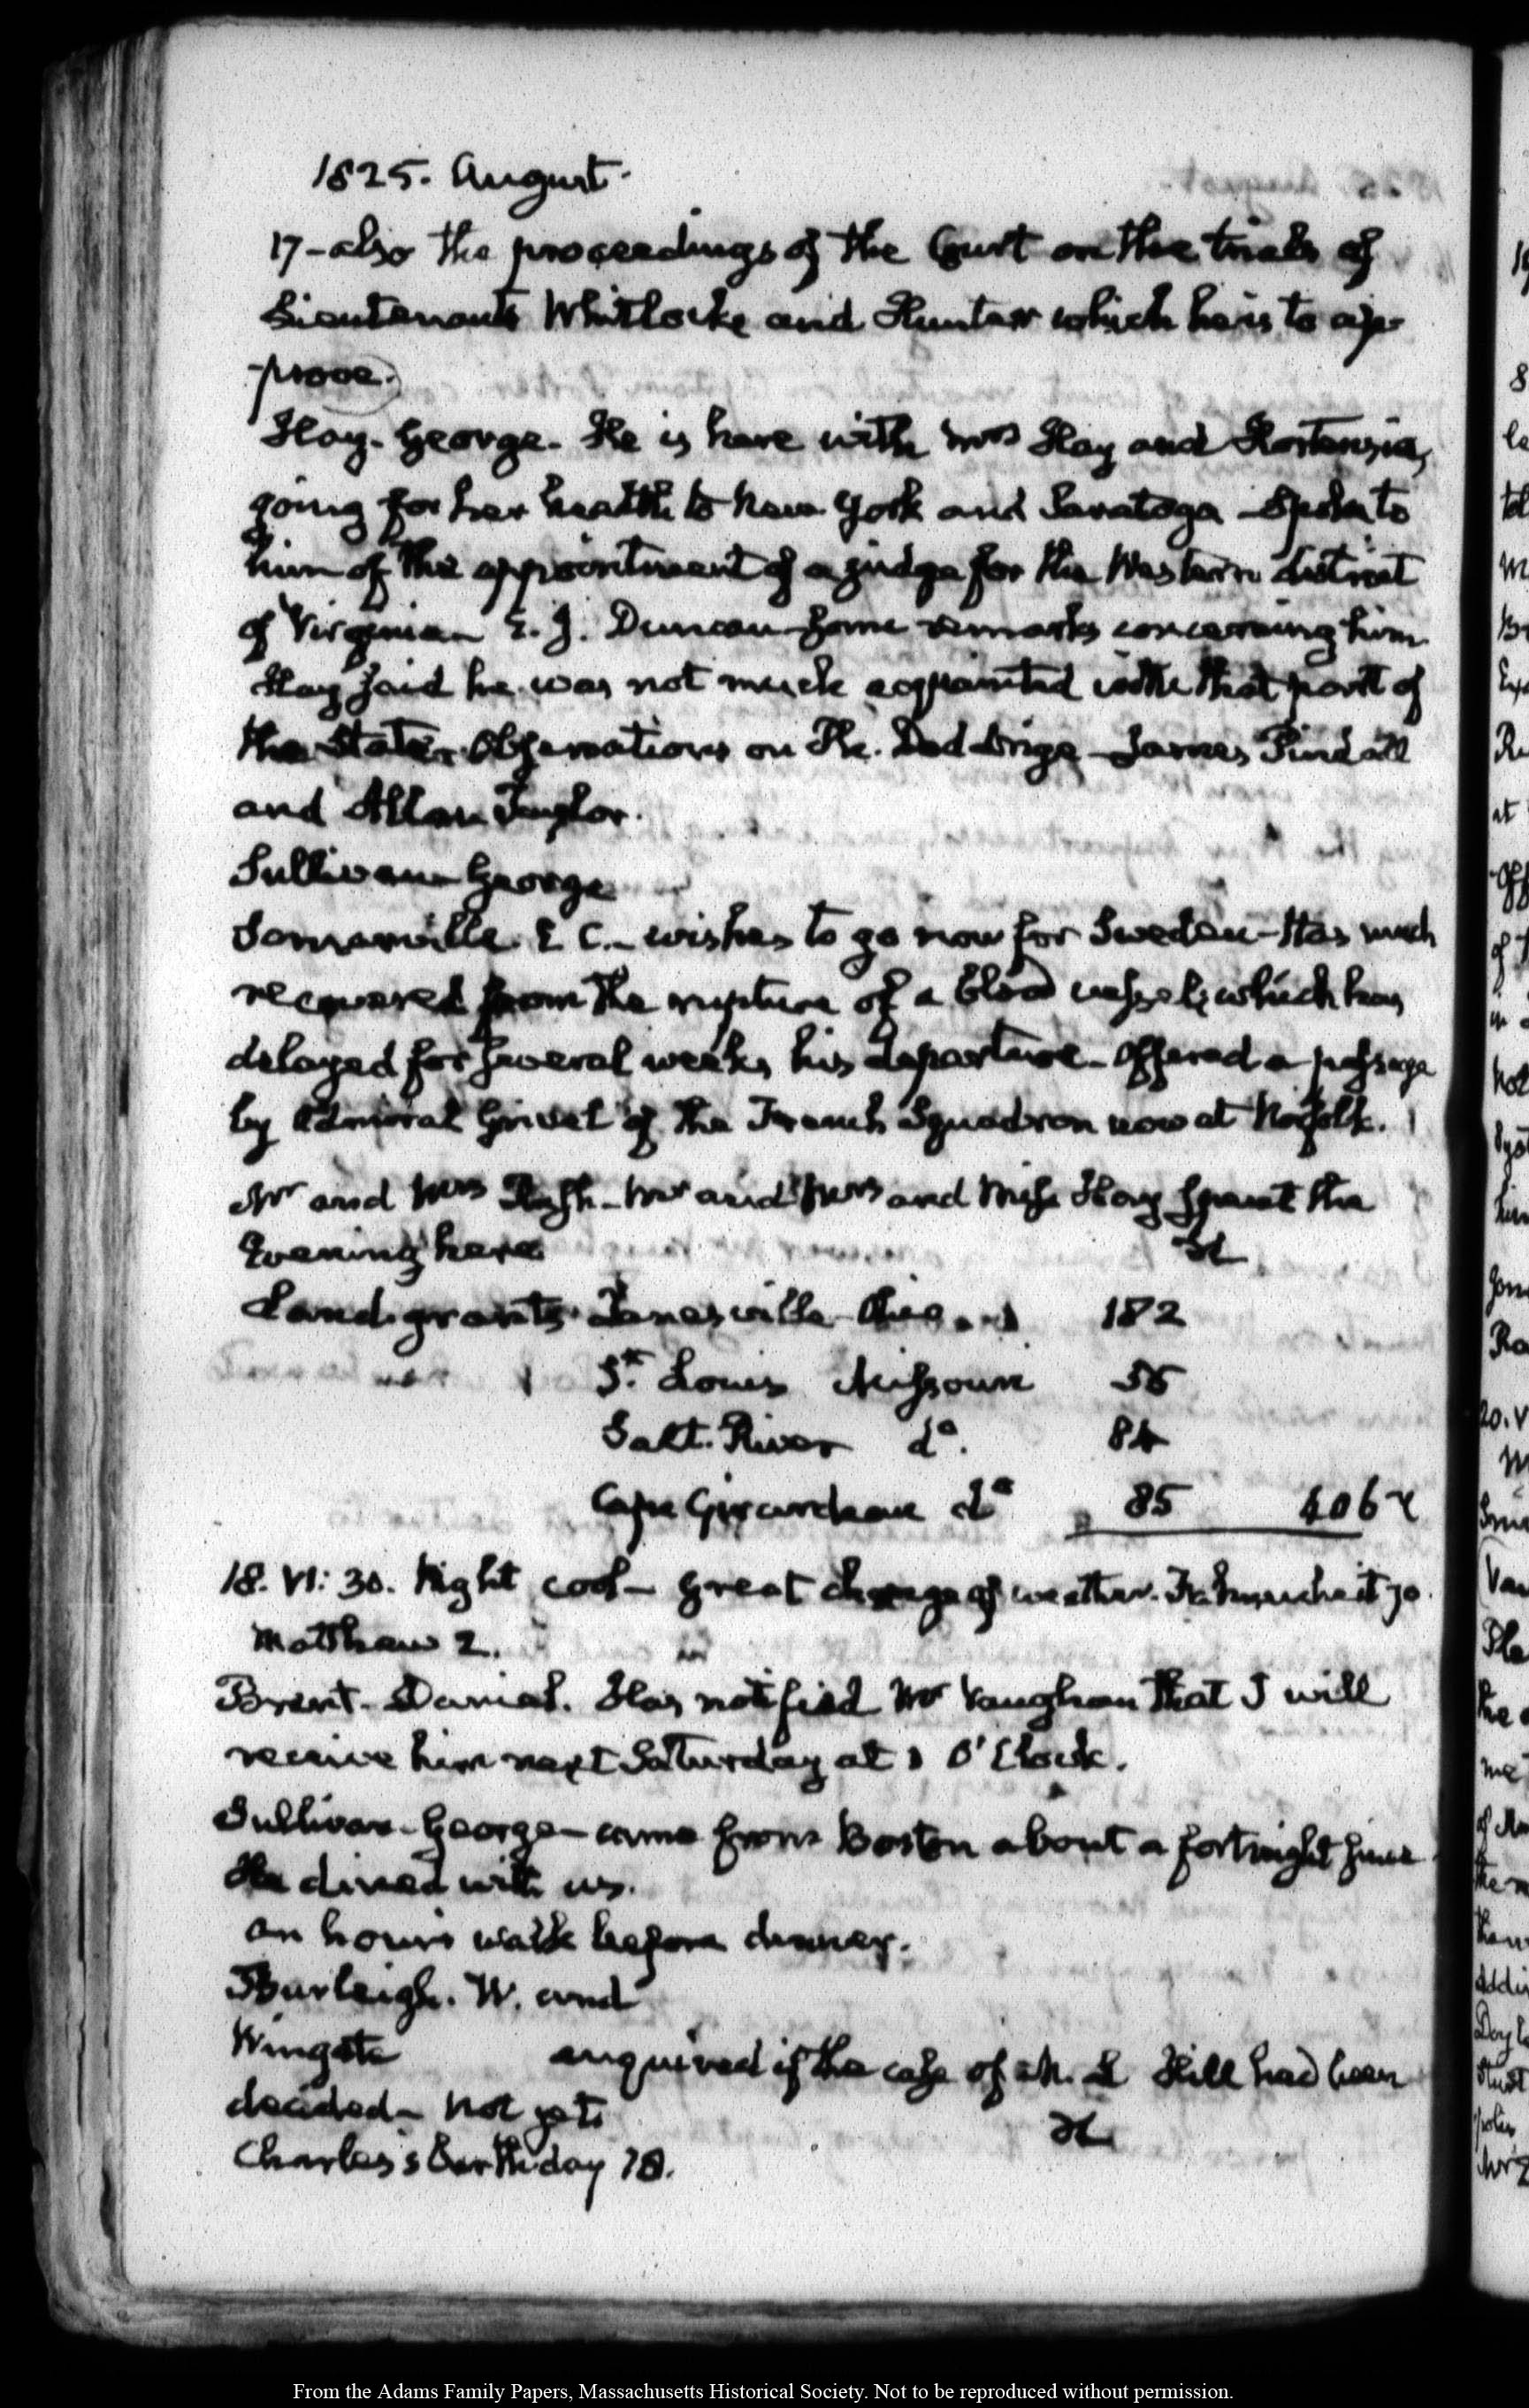 1825. August.
17- also the proceedings of the Court on the trials of
Lieutenants Whitlocke and Hunter which he is to ap-
prove.
Hay. George. He is here with Mrs Hay and Hortensia,
going for her health to New York and Saratoga - Spoke to
him of the appointment of a judge for the Western district
of Virginia - E. J. Duncan - some remarks concerning him
Hay said he was not much acquainted with that part of
the State. Observations on Ph. Doddridge - James Pindall
and Allan Taylor.
Sullivan - George
Somerville. E C. - wishes to go now for Sweden - Has much
recovered from the rupture of a blood vessel, which has
delayed for several weeks, his departure - Offered a passage
by Admiral Grivel of the French Squadron now at Norfolk.
Mr and Mrs Rush - Mr and Mrs and Miss Hay spent the
Evening here
Land grants. Zanesville Ohio 182
St. Louis Missouri 55
Salt. River do. 84
Cape Girardeau do 85 406
18. VI: 30. Night cool - great change of weather. Fahrenheit 70
Matthew 2.
Brent. Daniel. Has notified Mr Vaughan that I will
receive him next Saturday at 1 O'Clock.
Sullivan - George - came from Boston about a fortnight since
He dined with us.
an hour's walk before dinner.
Burleigh. W. and
Wingate enquired if the case of M. L Hill had been
decided - not yet
Charles's birthday 18.
From the Adams Family Papers, Massachusetts Historical Society. Not to be reproduced without permission.